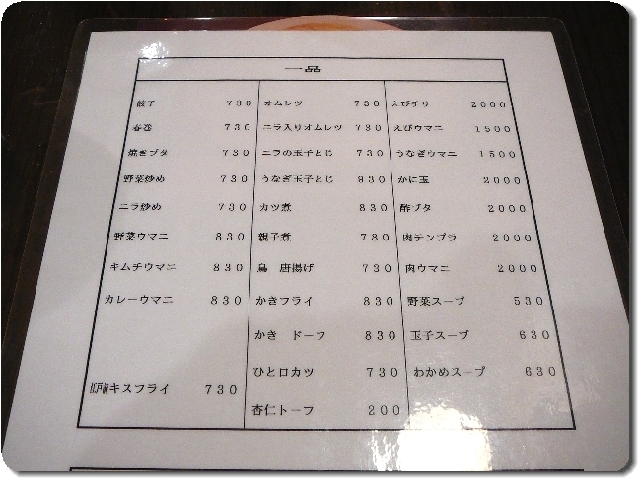 一品
餃子 730
春巻 730
焼きブタ 730
野菜炒め 730
ニラ炒め 730
野菜ウマニ 830
キムチウマニ 830
カレーウマニ 830
江戸前キスフライ 730
オムレツ 730
ニラ入りオムレツ 730
ニラの玉子とじ 730
うなぎ玉子とじ 930
カツ煮 830
親子煮 780
鳥 唐揚げ 730
かきフライ 830
かき ドーフ 830
ひと口カツ 730
杏仁トーフ 200
えびチリ 2000
えびウマニ 1500
うなぎウマニ 1500
かに玉 2000
酢ブタ 2000
肉テンプラ 2000
肉ウマニ 2000
野菜スープ 530
玉子スープ 630
わかめスープ 630